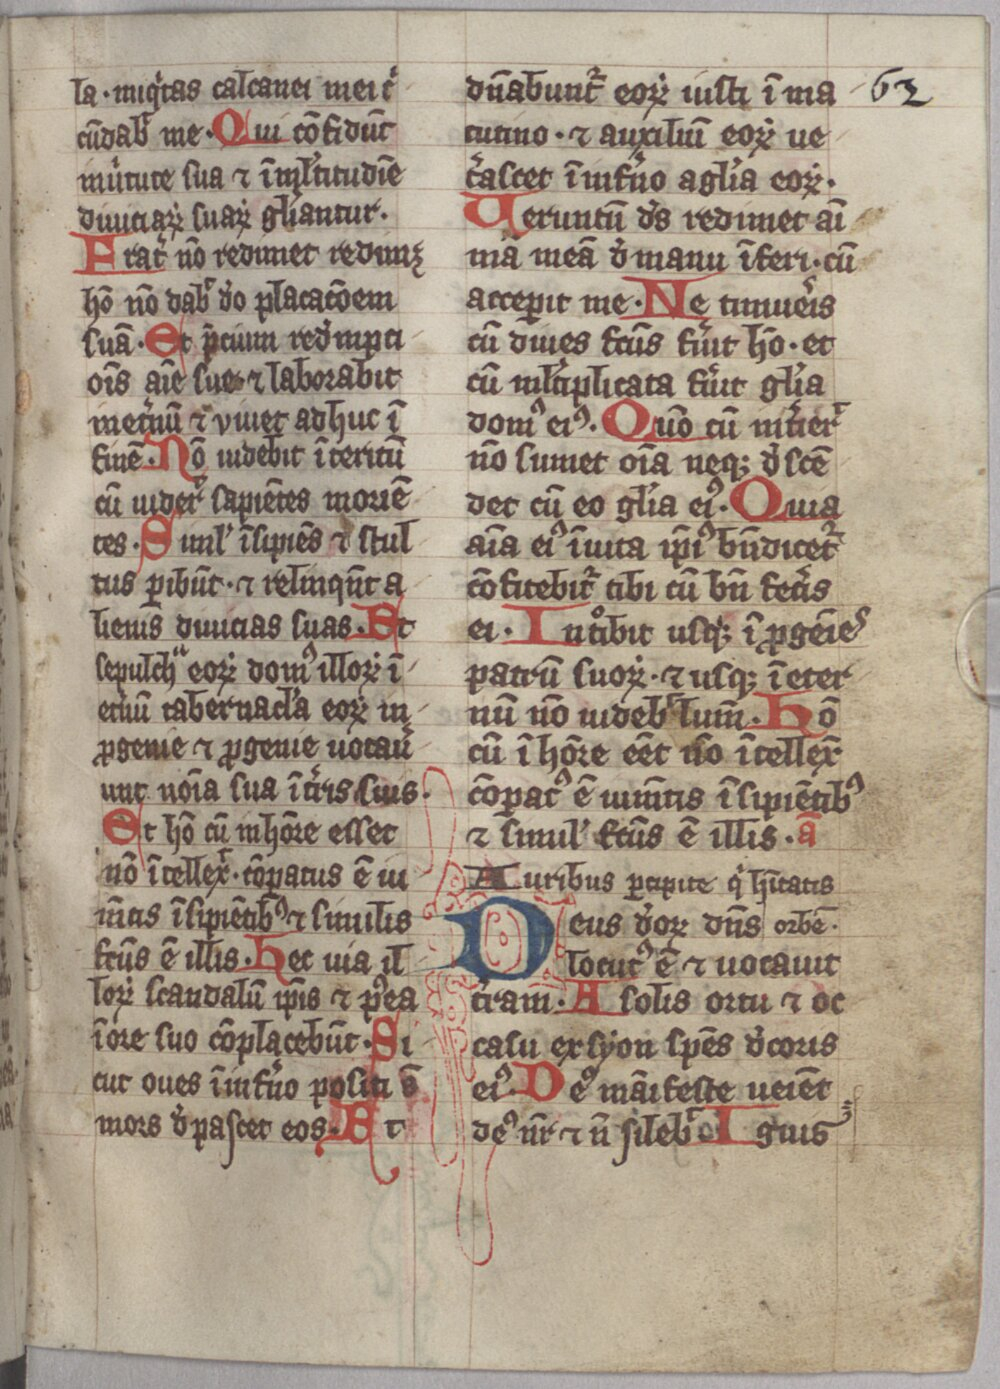 la · iniq̾tas calcanei mei c̾
cūdab̾ me · Qui cōfidūt
ī ṽtute sua ⁊ ī ml̾titudīe
diuiciaꝝ suaꝝ gl̄iantur ·
Frat̾ nō redimet redimꝫ
hō nō dab̾ do̾ placacōem
suā · Et p̄cium redēmpti
ōis aīe sue ⁊ laborabit
ī et̾nū ⁊ viuet adhuc ī
finē · Nō uidebit īteritū
cū uider̾ sapiētes moriē
tes · Simł īsipiēs ⁊ stul
tus ꝑibūt · ⁊ relinqn̄t a
lienis diuicias suas · Et
sepulch̾ eoꝝ domꝰ illoꝝ ī
et̾nū tabernacl̾a eoꝝ in
ꝓgenie ⁊ ꝓgenie uocau̾
unt noīa sua ī t̾ris suis ·
Et hō cū in hōre esset
nō ītellex̾ · cōpatus ē iu
mētis īsipiētibꝰ ⁊ similis
fcūs ē illis · Hec uia il
loꝝ scandalū ip̄is ⁊ p̾ea
ī ore suo cōplacebūt · Si
cut oues ī inf̾no positi s̄
mors d̾pascet eos · Et
dn̄abunt̾ eoꝝ iusti ī ma
tutino · ⁊ auxiliū eoꝝ ue
t̾ascet ī inf̾no a gl̄ia eoꝝ ·
Ueruntū ds̄ redimet aī
mā meā d̾ manu īferi · cū
acceperit me · Ne timueris
cū diues fcūs fu̾it hō · et
cū ml̾tiplicata fu̾it gl̄ia
domꝰ eiꝰ · Quō cū int̾ier̾
nō sumet oīa neqꝫ d̾scē
det cū eo gl̄ia eiꝰ · Quia
aīa eiꝰ ī uita ip̄iꝰ bn̄dicet̾
cōfitebit̾ tibi cū bn̄ fec̾is
ei · Introibit usqꝫ ī ꝓgēies
patrū suoꝝ · ⁊ usqꝫ ī eter
nū nō uideb̾ lumē · Hō
cū ī hōre eēt nō ītellex̾
cōpatꝰ ē iumētis īsipiētibꝰ
⁊ simił fcūs ē illis · ā
Auribus ꝑcipite q̾ hītatis
Deus d̾oꝝ dn̄s orbē ·
locutꝰ ē ⁊ uocauit
t̾ram · A solis ortu ⁊ oc
casu ex syon spēs d̾coris
eiꝰ · Deꝰ māifeste ueiēt
deꝰ nr̄ ⁊ n̄ sileb̾ · Ignis
62